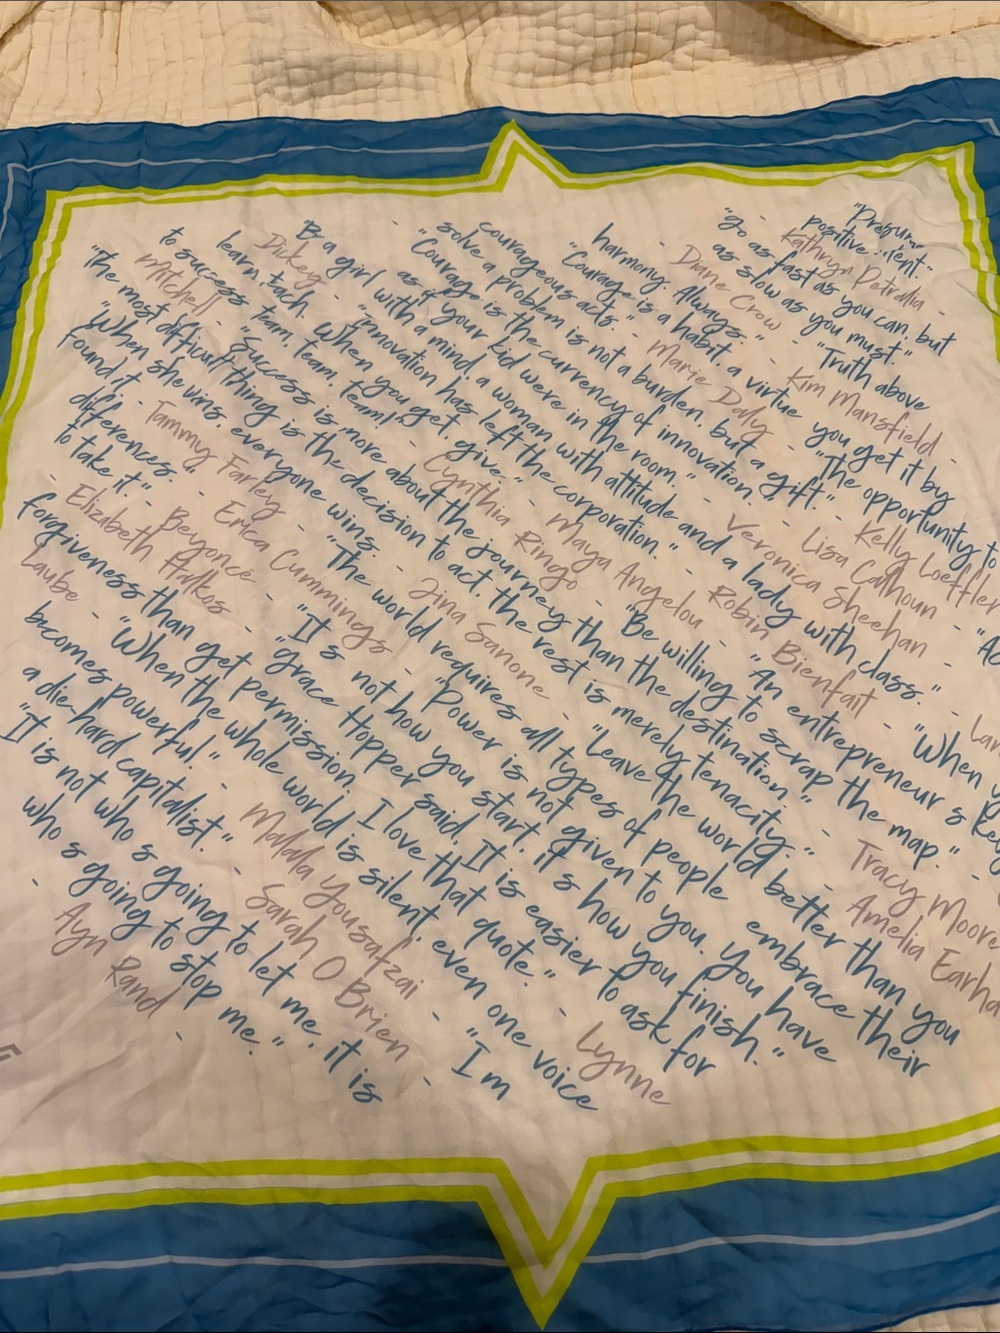 "Presume
positive
Kathryn Petralia -
"go as fast as you can, but
- as slow as you must."
Diane Crow - "Truth above
harmony. Always." - Kim Mansfield -
"Courage is a habit, a virtue you get it by
courageous acts." - Marie Daly - "The opportunity to
solve a problem is not a burden, but a gift." - Kelly Loeffler
"Courage is the currency of innovation." - Lisa Calhoun -
as if your kid were in the room." - Veronica Sheehan -
"Be a girl with a mind, a woman with attitude and a lady with class." -
Dickey - "Innovation has left the corporation." - Robin Bienfait - "When
learn, teach. When you get, give." - Maya Angelou - "An entrepreneur s key
to success team, team, team!" - Cynthia Ringo - "Be willing to scrap the map." -
Mitchell - "Success is more about the journey than the destination." - Tracy Moore
"The most difficult thing is the decision to act, the rest is merely tenacity." - Amelia Earha
"When she wins, everyone wins." - Jina Sanone - "Leave the world better than you
found it." - Tammy Farley - "The world requires all types of people embrace their
differences." - Erica Cummings - "Power is not given to you. You have
to take it." - Beyoncé - "It s not how you start, it s how you finish."
- Elizabeth Halkos - "Grace Hopper said, It is easier to ask for
forgiveness than get permission. I love that quote." - Lynne
Laube - "When the whole world is silent, even one voice
becomes powerful." - Malala Yousafzai - "I m
a die-hard capitalist." - Sarah O Brien -
"It is not who s going to let me, it is
who s going to stop me."
- Ayn Rand -